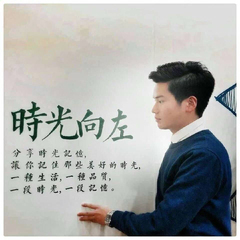 時光向左
分享時光記憶，
讓你記住那些美好的時光，
一種生活，一種品質，
一段時光，一段記憶。